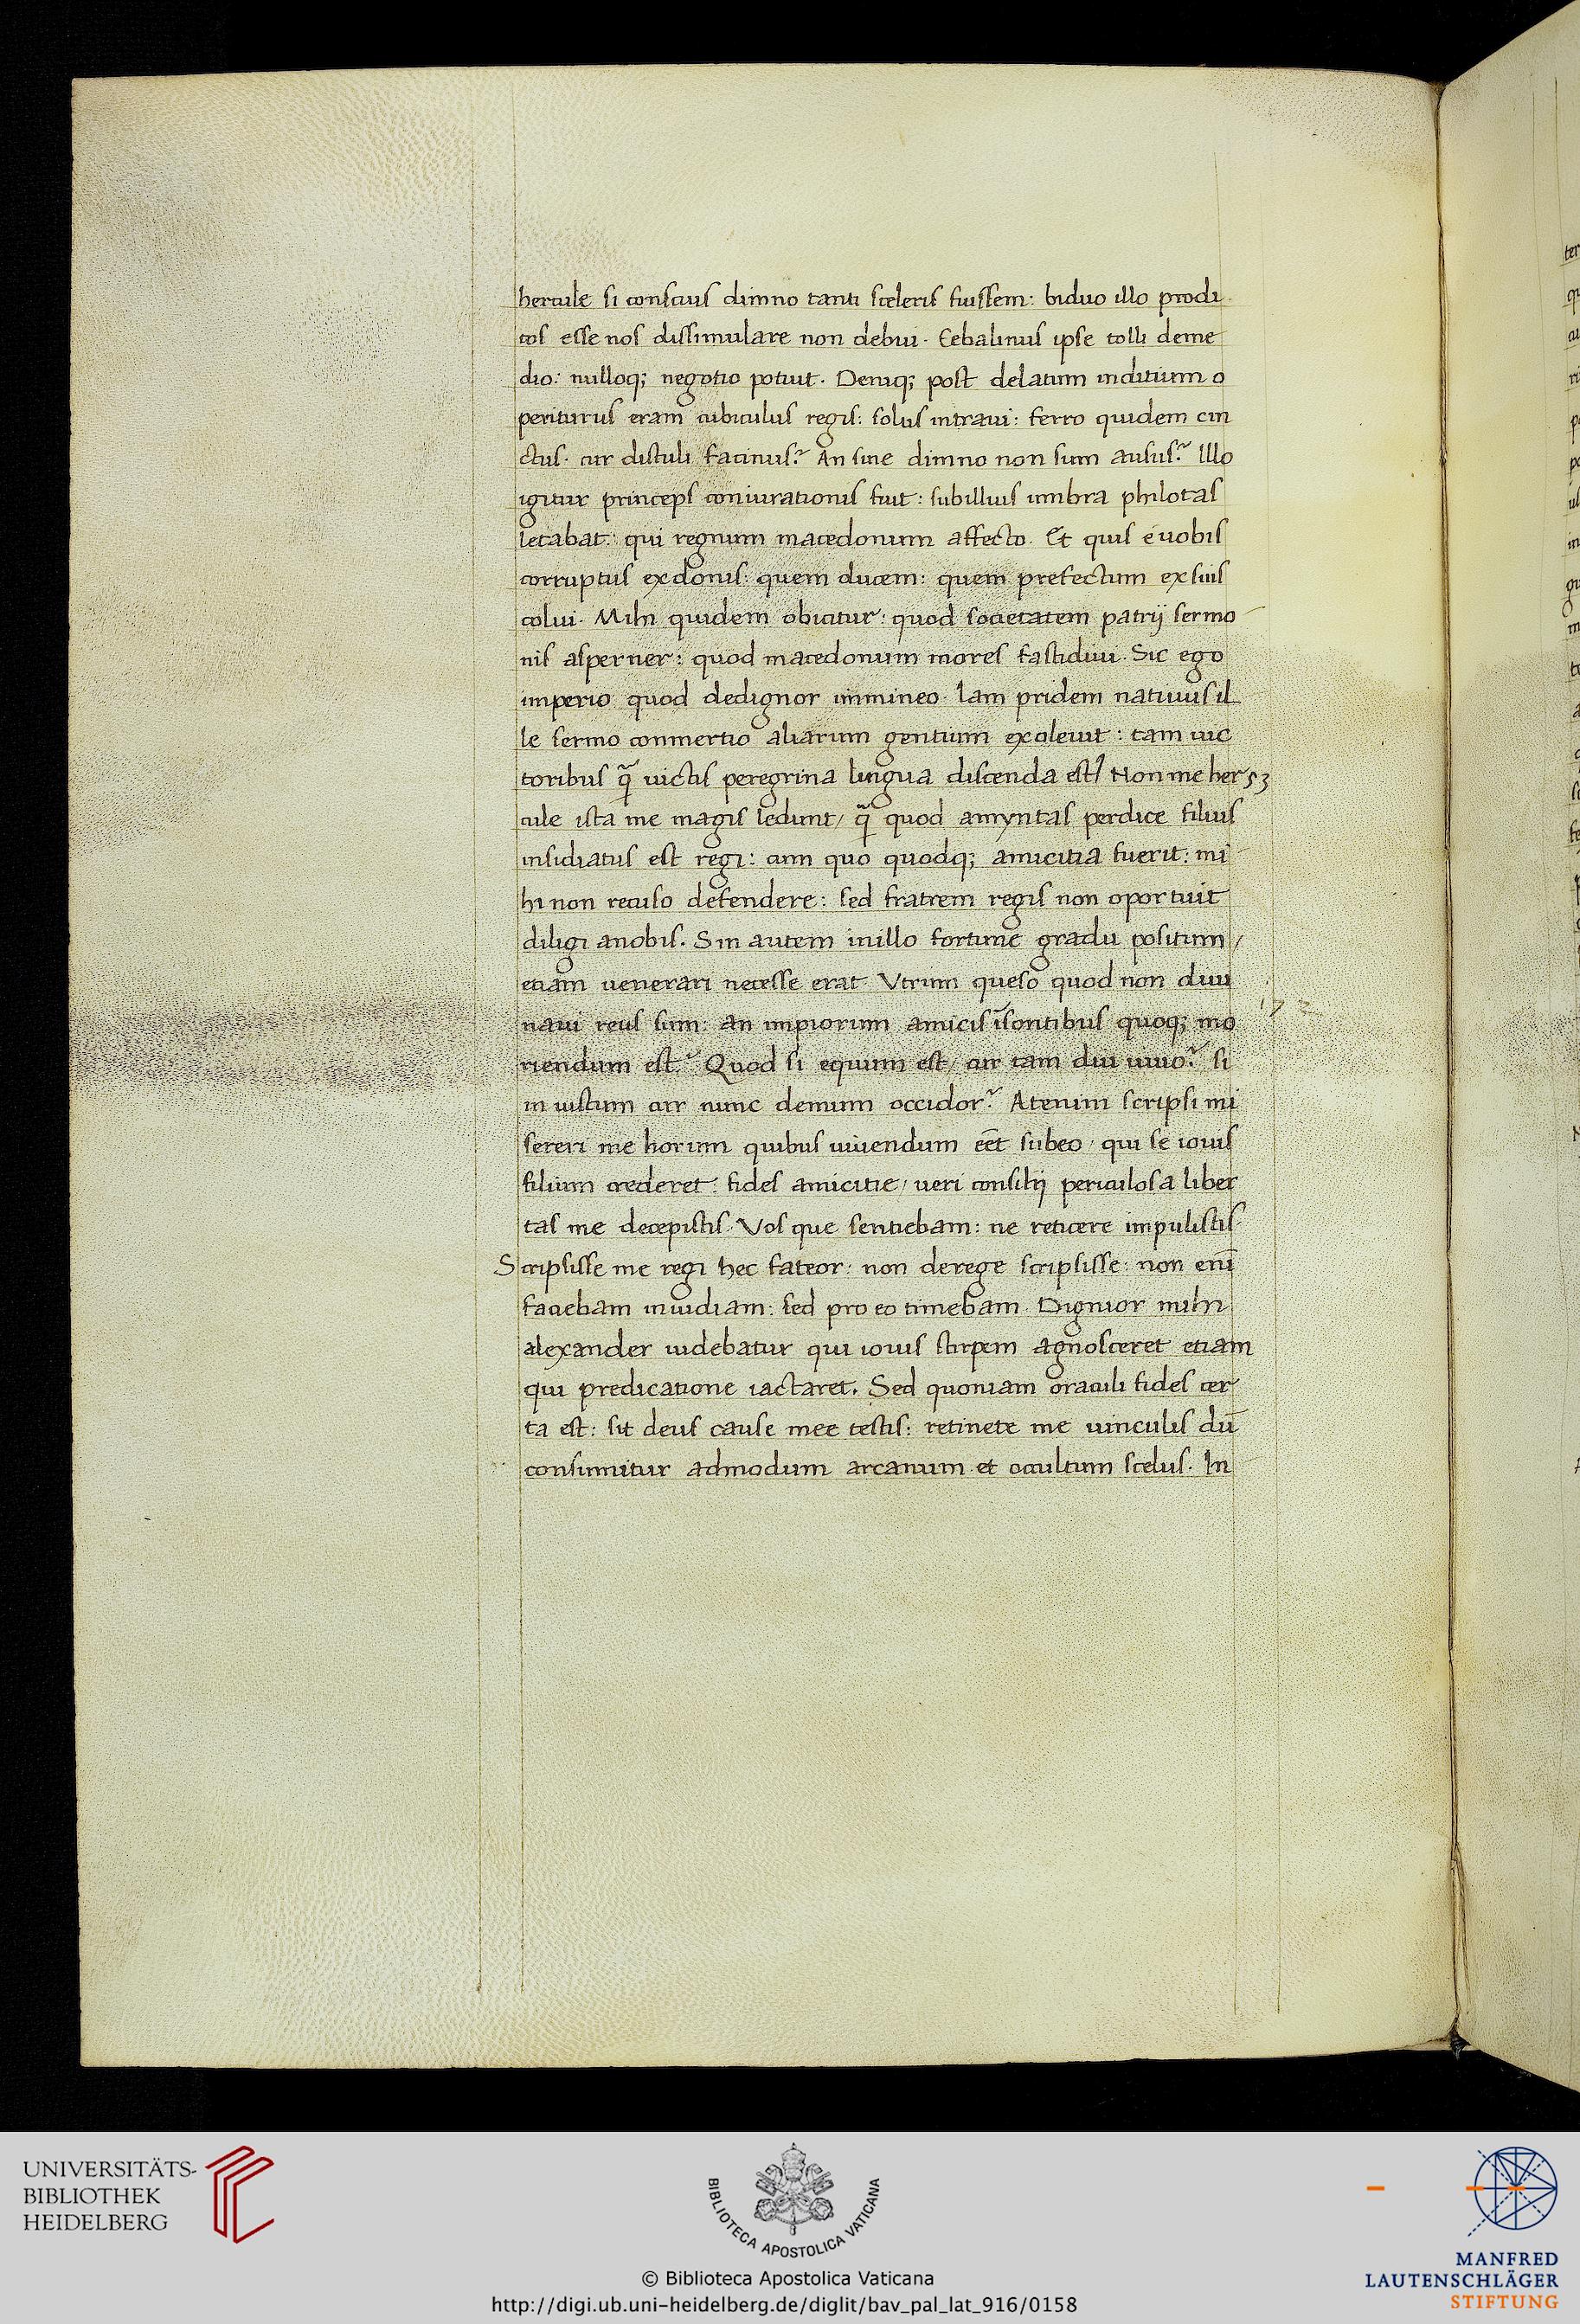 hercule si conscius dimno tanti sceleris fuissem: biduo illo prodi
tos esse nos dissimulare non debui. Cebalinus ipse tolli deme
dio: nulloq; negotio potuit. Deniq; post delatum inditium o
periturus eram cubiculus regis: solus intraui: ferro quidem cin
ctus. cur distuli facinus? An sine dimno non sum ausus? Illo
igitur princeps coniurationis fuit: sub illius umbra philotas
letabat: qui regnum macedonum affecto. Et quis e uobis
corruptus ex donis: quem ducem: quem prefectum ex suis
colui. Mihi quidem obicitur: quod societatem patrij sermo
nis asperner: quod macedonum mores fastidiui. Sic ego
imperio quod dedignor immineo. Iam pridem natiuus il
le sermo conmertio aliarum gentium exoleuit: tam uic
toribus q̃ uictis peregrina lingua discenda est. Non me her
cule ista me magis ledunt/ q̃ quod amyntas perdice filius
insidiatus est regi: cum quo quodq; amicitia fuerit: mi
hi non recuso defendere: sed fratrem regis non oportuit
diligi anobis. Sin autem in illo fortune gradu positum/
etiam uenerari necesse erat. Vtrum queso quod non diui
naui reus sum: an impiorum amicis ĩsontibus quoq; mo
riendum est? Quod si equum est/ cur tam diu uiuo? si
in iustum cur nunc demum occidor? Atenim scripsi mi
sereri me horum quibus uiuendum eẽt subeo/ qui se iouis
filium crederet: fides amicitie/ ueri consilij periculosa liber
tas me decepistis. Vos que sentiebam: ne reticere impulistis.
Scripsisse me regi hec fateor: non derege scripsisse: non enĩ
faciebam inuidiam: sed pro eo timebam. Dignior mihi
alexander uidebatur qui iouis stirpem agnosceret etiam
qui predicatione iactaret. Sed quoniam oraculi fides cer
ta est: sit deus cause mee testis: retinete me uinculis dũ
consumitur admodum arcanum et occultum scelus. In
UNIVERSITÄTS-
BIBLIOTHEK
HEIDELBERG
BIBLIOTECA APOSTOLICA VATICANA
© Biblioteca Apostolica Vaticana
http://digi.ub.uni-heidelberg.de/diglit/bav_pal_lat_916/0158
MANFRED
LAUTENSCHLÄGER
STIFTUNG